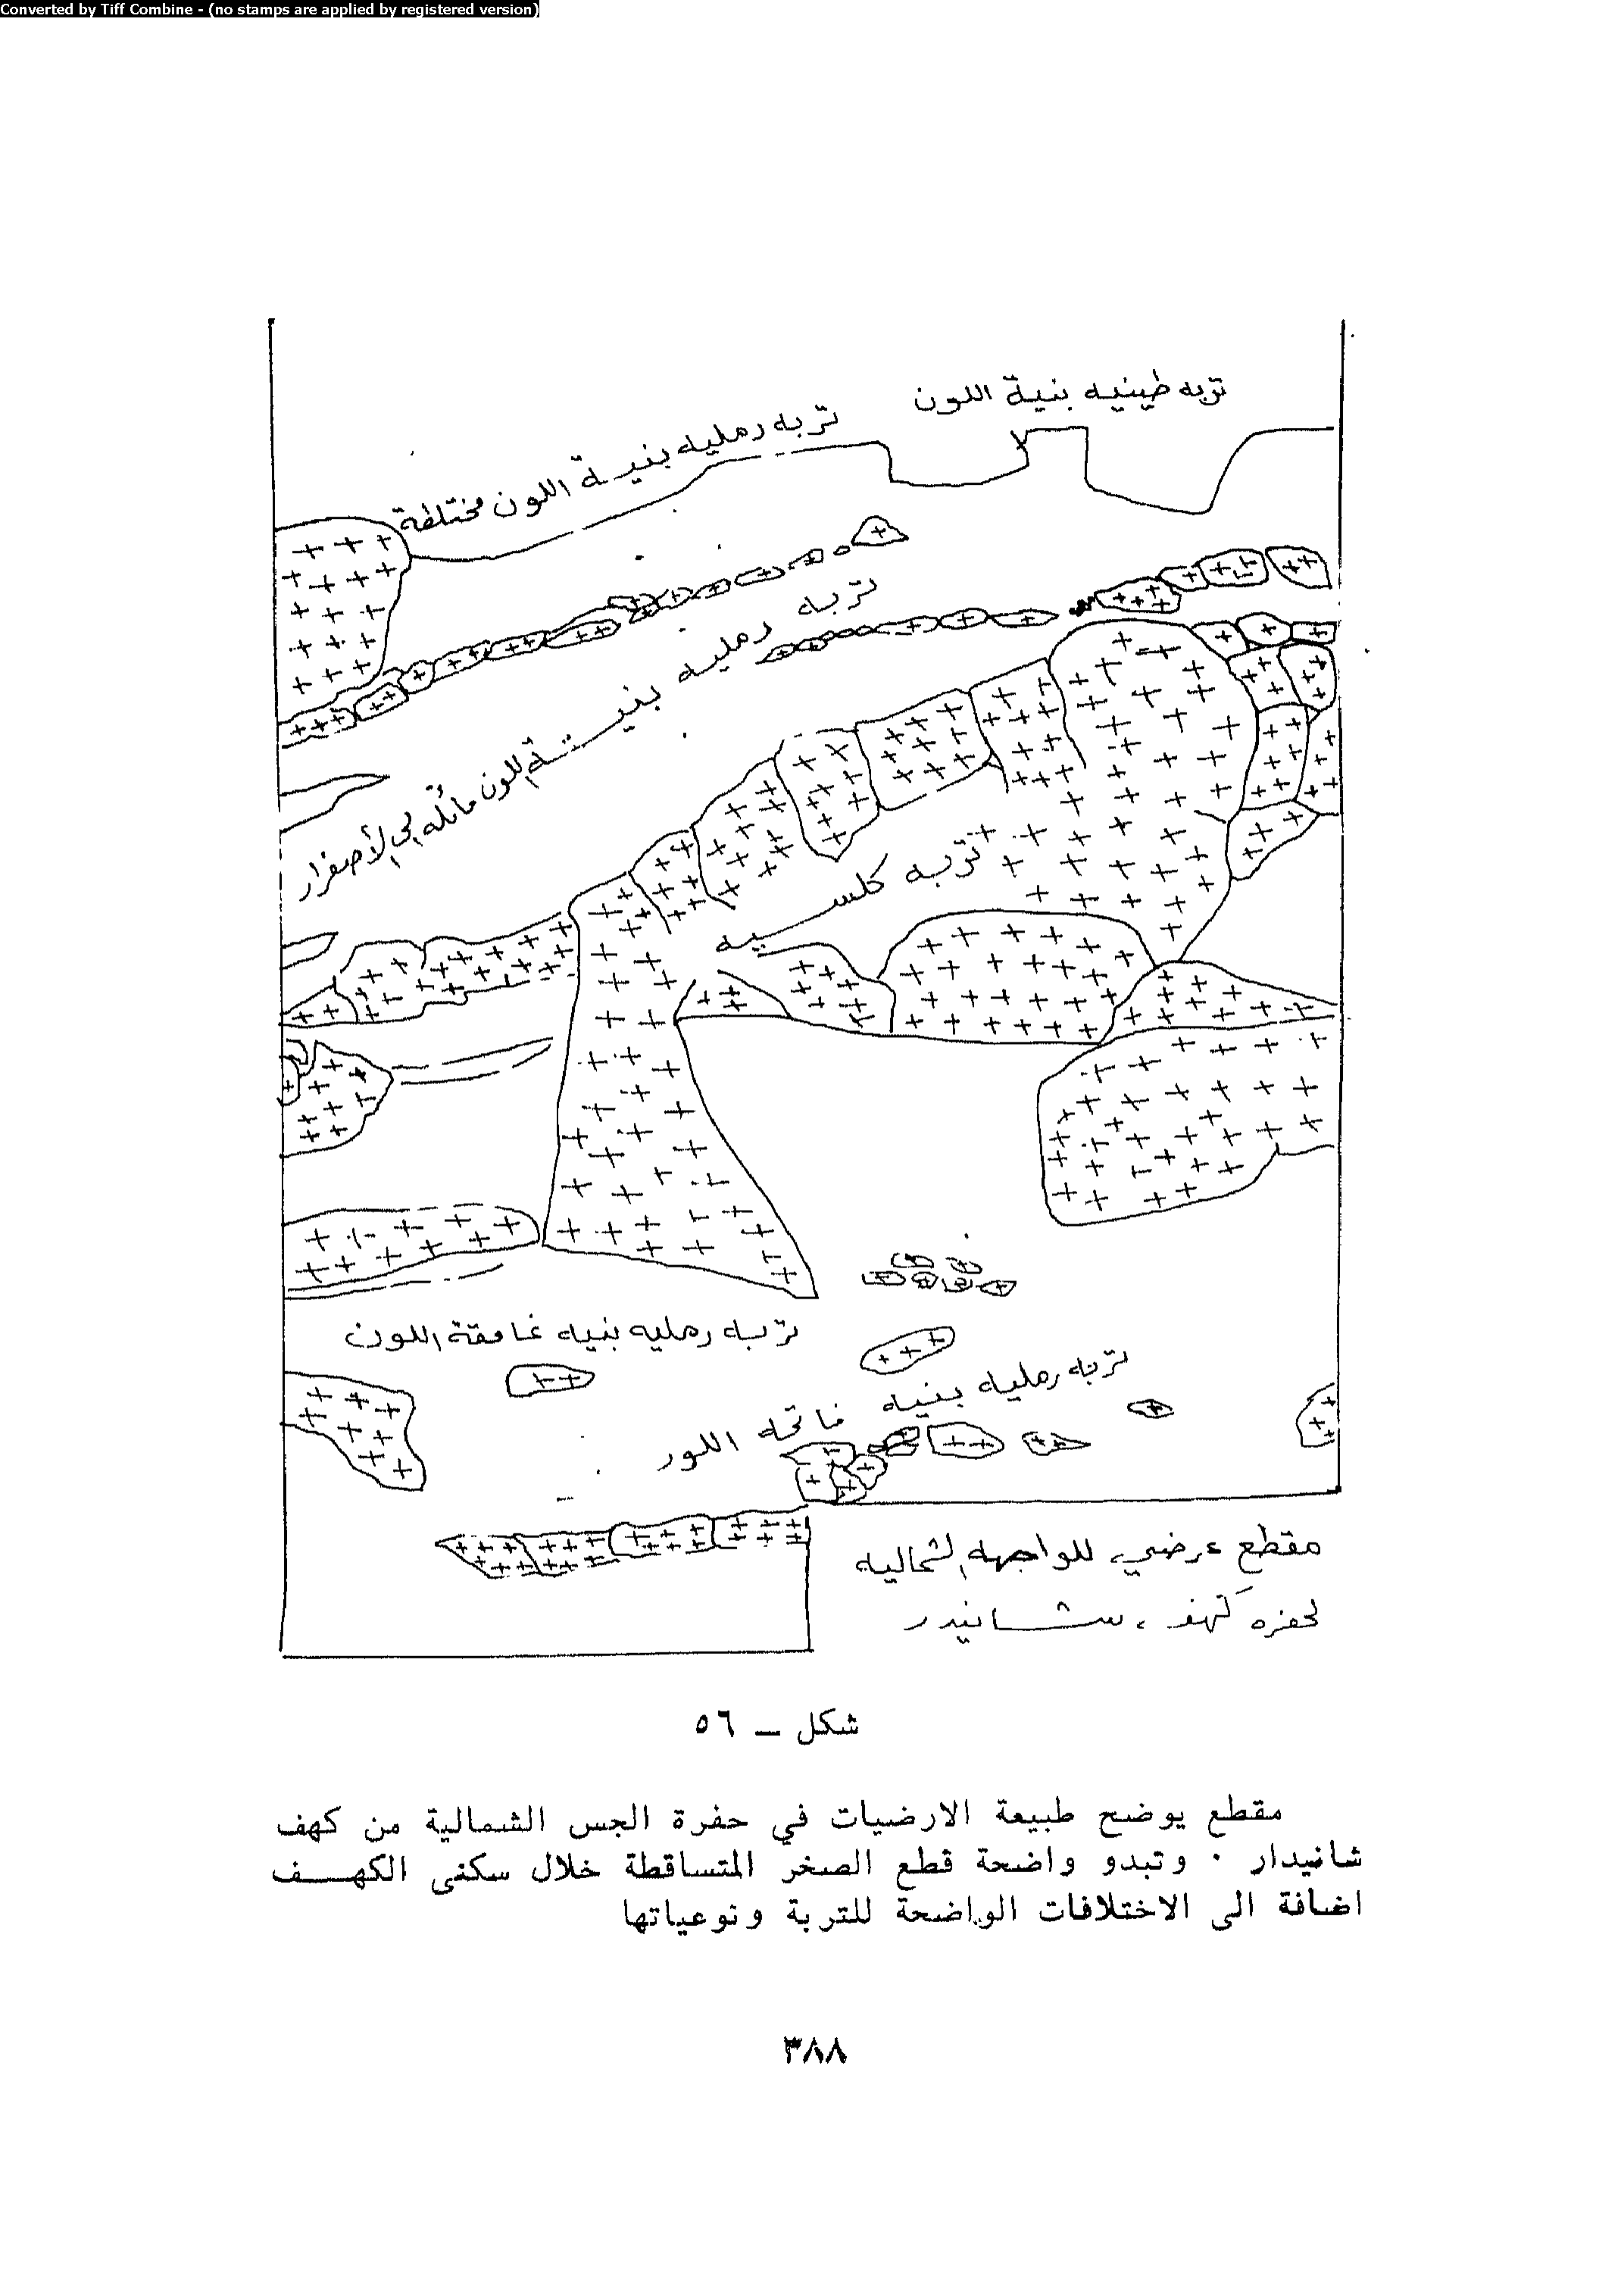 Converted by Tiff Combine - (no stamps are applied by registered version)
تربه طينيه بنية اللون
تربه رمليه بنيـة اللون مختلطة
تربه رمليه بنيـة اللون مائله إلى الأصفرار
تربه كلسيه
تربه رمليه بنيه غامقة اللون
تربه رمليه بنيه فاتحه اللون
مقطع عرضي للواجهه الشماليه
لحفره كهف شانيدر
شكل ــ ٥٦
مقطع يوضح طبيعة الارضيات في حفرة الجس الشمالية من كهف
شانيدار ٠ وتبدو واضحة قطع الصخر المتساقطة خلال سكنى الكهــف
اضافة الى الاختلافات الواضحة للتربة ونوعياتها
٣٨٨